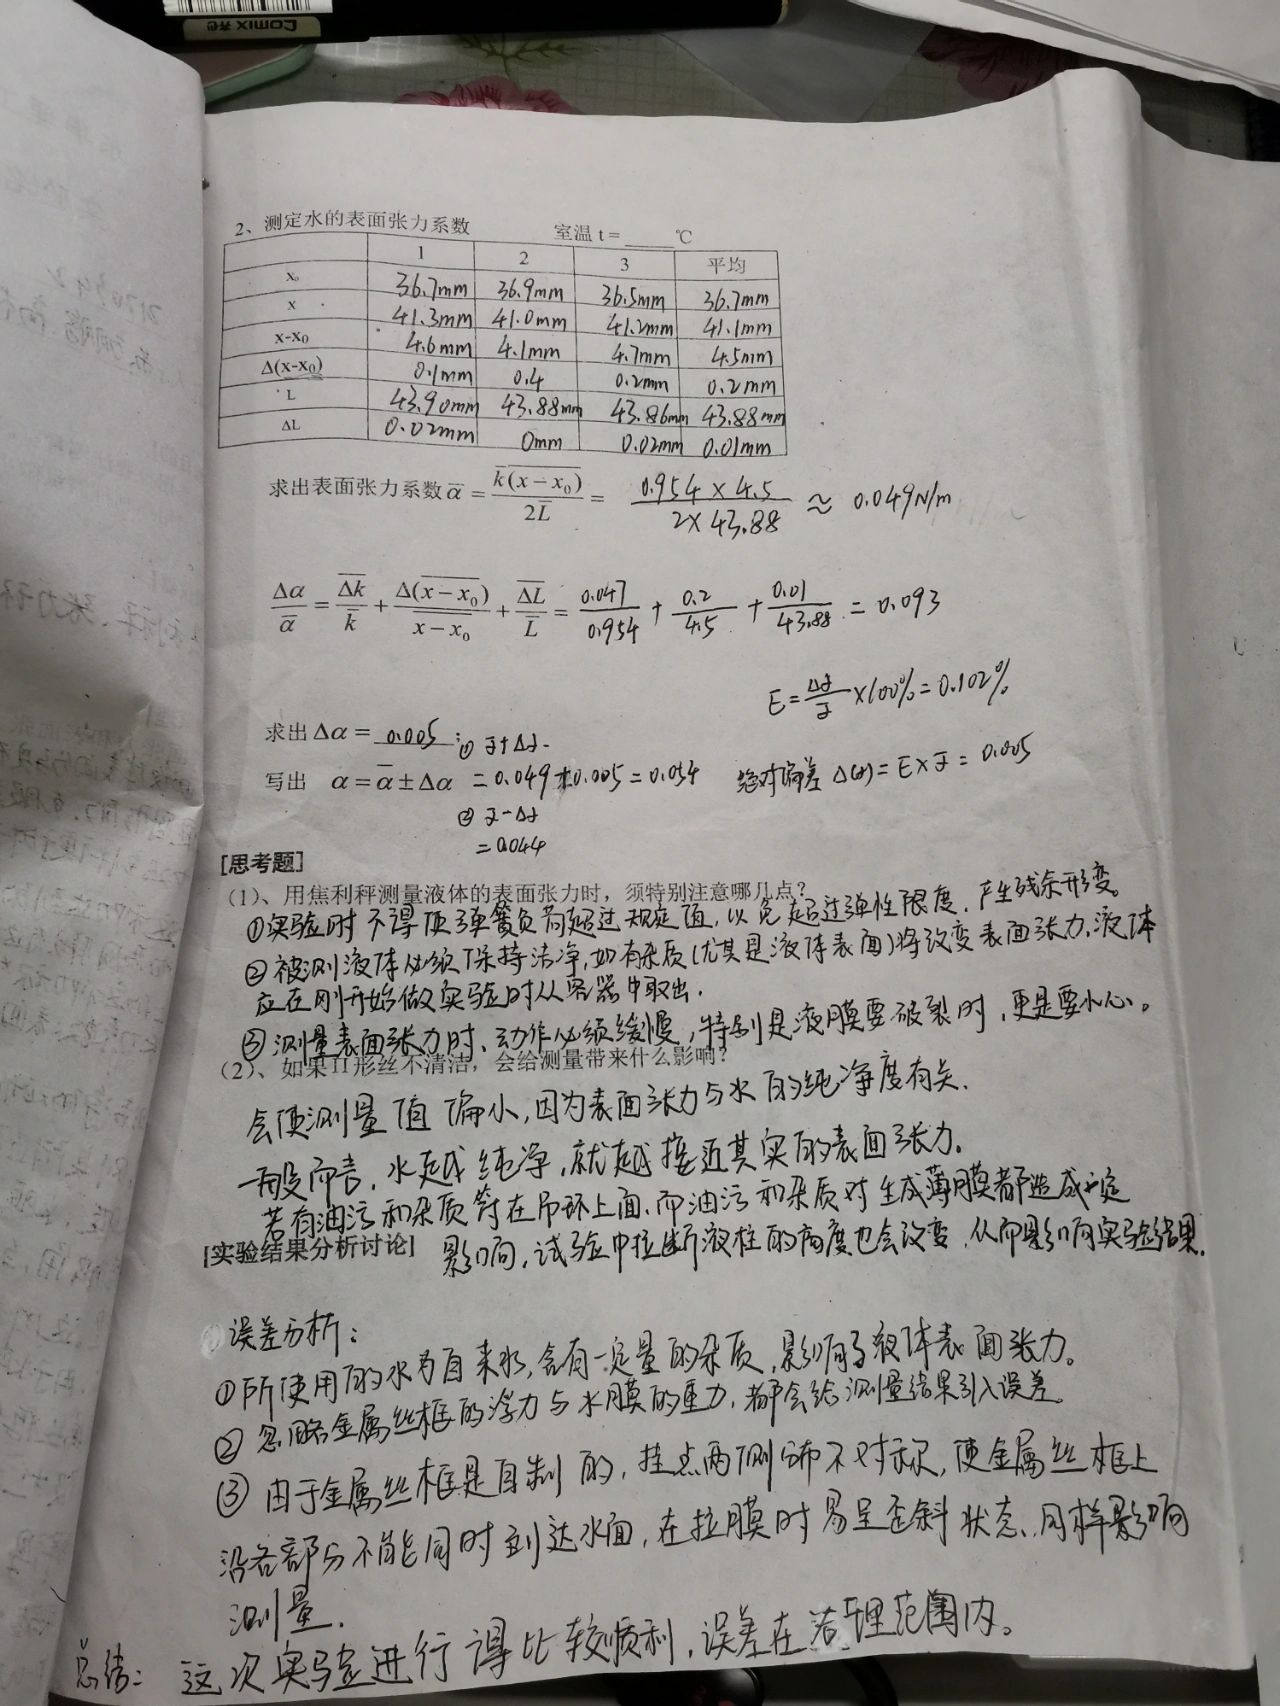 comix 齐心
2、测定水的表面张力系数 室温 t = ____ ℃
1 2 3 平均
x₀ 36.7mm 36.9mm 36.5mm 36.7mm
x 41.3mm 41.0mm 41.2mm 41.1mm
x-x₀ 4.6mm 4.1mm 4.7mm 4.5mm
Δ(x-x₀) 0.1mm 0.4 0.2mm 0.2mm
L 43.90mm 43.88mm 43.86mm 43.88mm
ΔL 0.02mm 0mm 0.02mm 0.01mm
求出表面张力系数 ᾱ = k̄(x-x₀) / 2L̄ = 0.954 × 4.5 / 2×43.88 ≈ 0.049N/m
Δα/ᾱ = Δk/k̄ + Δ(x-x₀)/x-x₀ + ΔL/L̄ = 0.047/0.954 + 0.2/4.5 + 0.01/43.88 = 0.093
E = Δα/ᾱ ×100% = 0.102%
求出 Δα = 0.005 ; ① ᾱ+Δα
写出 α = ᾱ ± Δα = 0.049+0.005 = 0.054 绝对偏差 Δ(α) = E×ᾱ = 0.005
② ᾱ-Δα
= 0.044
[思考题]
（1）、用焦利秤测量液体的表面张力时，须特别注意哪几点？
①实验时不得使弹簧负荷超过规定值，以免超过弹性限度，产生残余形变。
②被测液体必须保持洁净，如有杂质(尤其是液体表面)将改变表面张力，液体
应在刚开始做实验时从容器中取出．
③测量表面张力时，动作必须缓慢，特别是液膜要破裂时，更是要小心。
（2）、如果Π形丝不清洁，会给测量带来什么影响？
会使测量值偏小，因为表面张力与水的纯净度有关．
一般而言，水越纯净，就越接近其实的表面张力。
若有油污和杂质附在吊环上面，而油污和杂质对生成薄膜都造成一定
[实验结果分析讨论] 影响，试验中拉断液柱的高度也会改变，从而影响实验结果．
误差分析：
①所使用的水为自来水，含有一定量的杂质，影响了液体表面张力。
②忽略金属丝框的浮力与水膜的重力，都会给测量结果引入误差
③由于金属丝框是自制的，挂点两侧分布不对称，使金属丝框上
沿各部分不能同时到达水面，在拉膜时易呈歪斜状态、同样影响
测量．
总结：这次实验进行得比较顺利，误差在合理范围内。